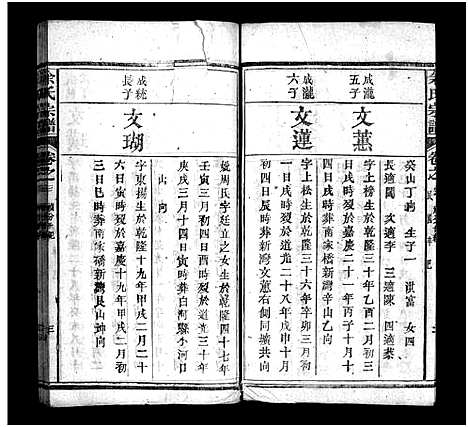 余氏宗譜
卷之
癸山丁向 生子一 洪富 女四
長適閻 文適李 三適陳 四適蔡
成瀧
五子
文蕙
字上松生於乾隆三十年乙酉二月初三
日戌時歿於嘉慶二十一年丙子三月初
四日戌時葬南家橋新灣辛山乙向
成瀧
六子
文蓮
字上榜生於乾隆三十六年辛卯三月
日亥時歿於道光二十八年戊申十月
初四日辰時葬新灣文蕙右側同壙共向
余氏宗譜
卷之三
三
成統
長子
文瑚
字東揚生於乾隆十九年甲戌二月二十
六日寅時歿於嘉慶十九年甲戌二月初
三日巳時葬南家橋新灣艮山坤向
娶周氏字廷立之女生於乾隆四十七年
壬寅三月初八日辰時歿於道光三十年
庚戌三月十四日寅時葬白河縣小河口
山 向